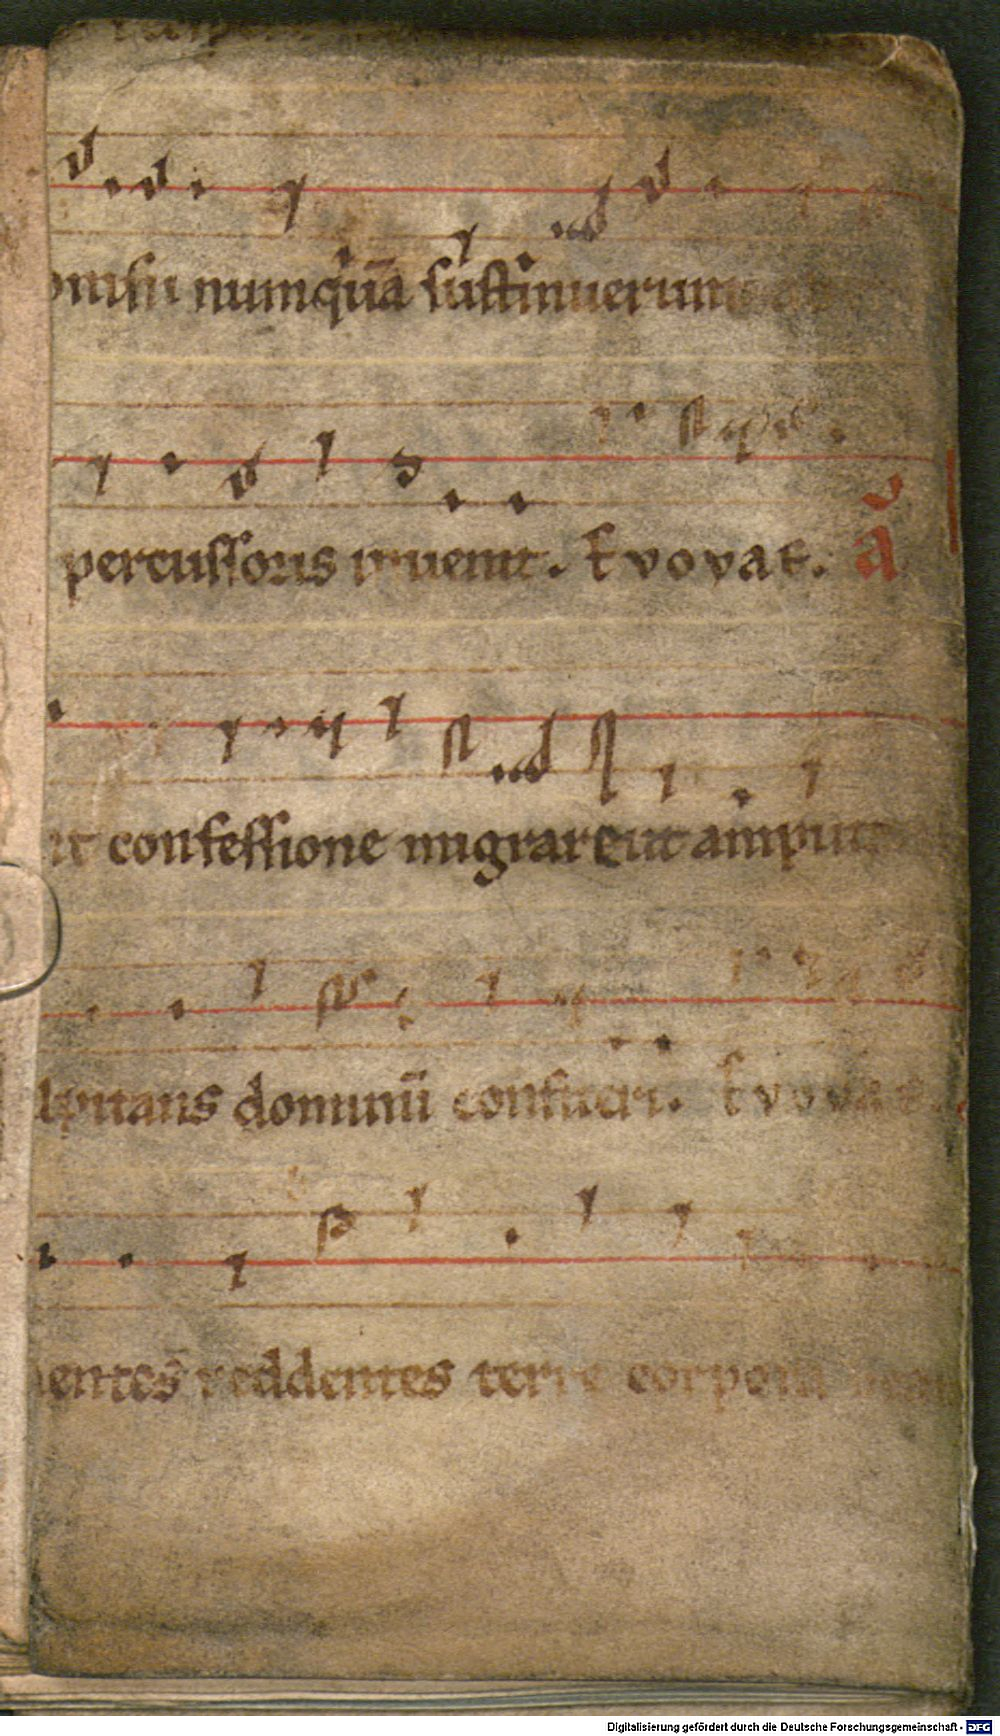 onisu numquā sustinuerunt
percussoris inuenit. Evovae. a͂
it confessione migrarent amput
lpitans dominū confiteri. Evovae
entes reddentes terre corpora
Digitalisierung gefördert durch die Deutsche Forschungsgemeinschaft - DFG